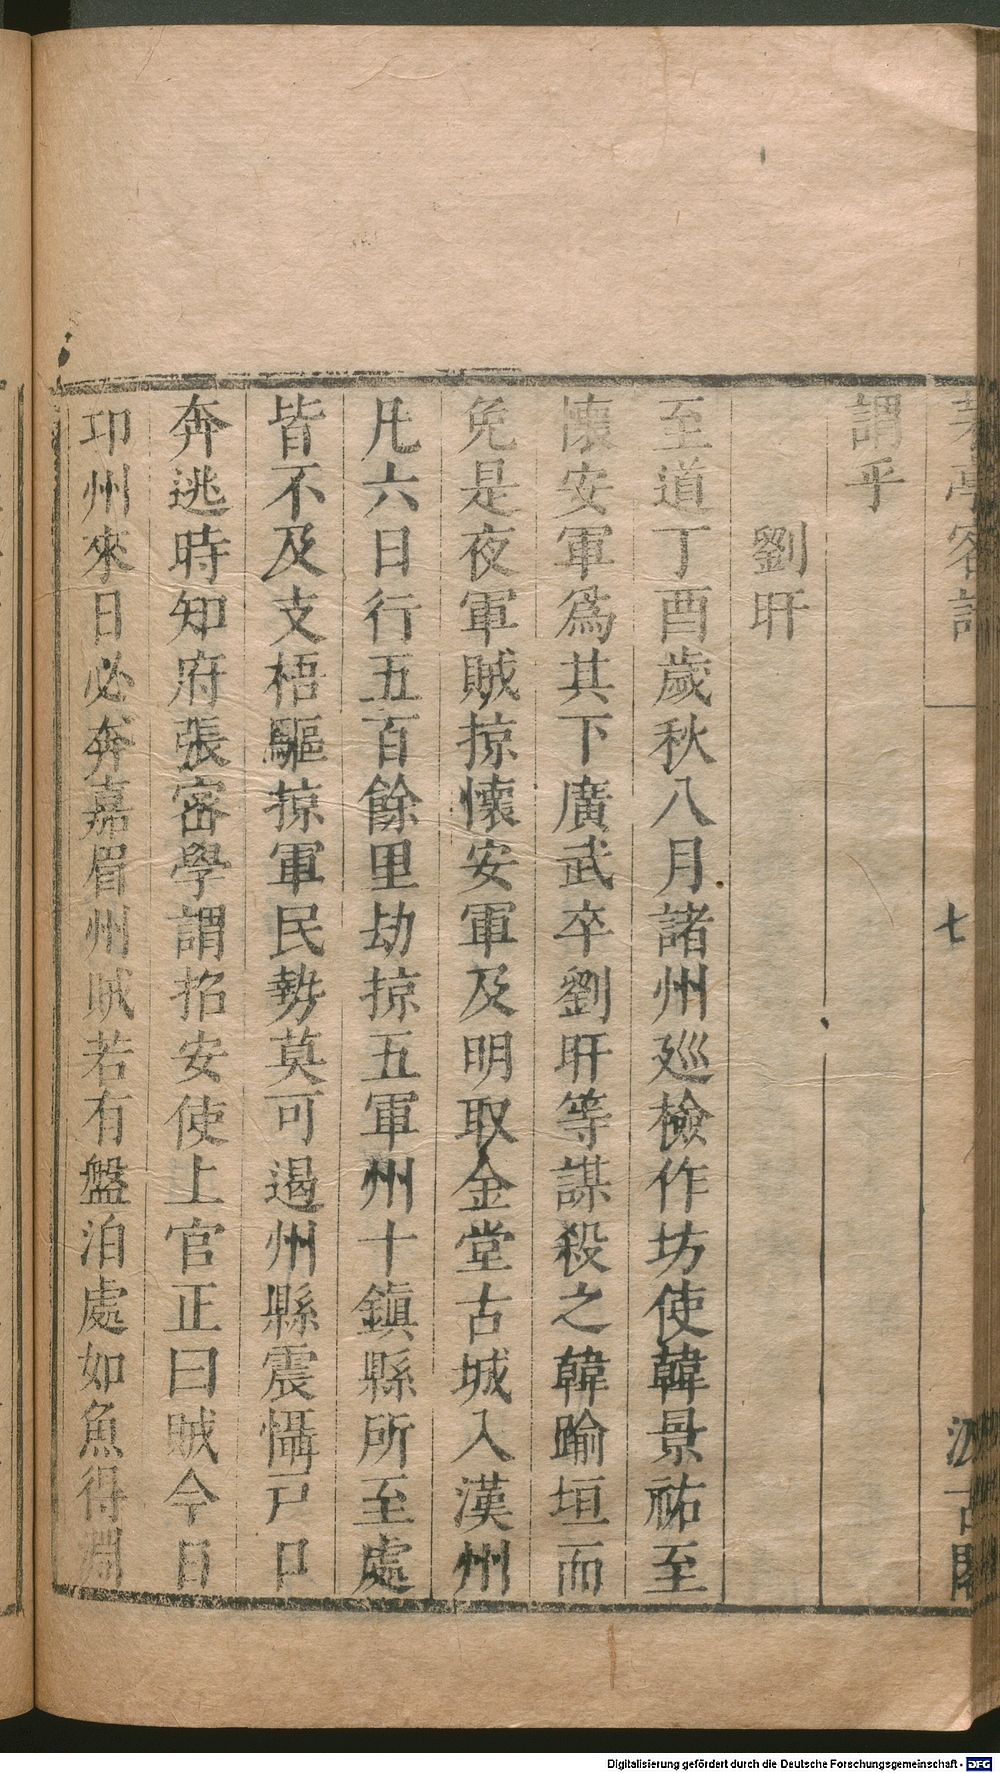 茅亭客話
七
汲古閣
謂乎
劉旰
至道丁酉歲秋八月諸州廵檢作坊使韓景祐至
懷安軍爲其下廣武卒劉旰等謀殺之韓踰垣而
免是夜軍賊掠懷安軍及明取金堂古城入漢州
凡六日行五百餘里劫掠五軍州十鎮縣所至處
皆不及支梧驅掠軍民勢莫可遏州縣震懾戸口
奔逃時知府張密學謂招安使上官正曰賊今日
卭州來日必奔嘉眉州賊若有盤泊處如魚得淵
Digitalisierung gefördert durch die Deutsche Forschungsgemeinschaft - DFG